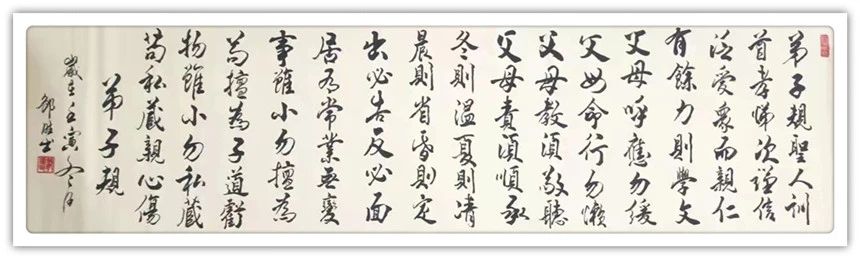 弟子規聖人訓
首孝悌次謹信
泛愛眾而親仁
有餘力則學文
父母呼應勿緩
父母命行勿懶
父母教須敬聽
父母責須順承
冬則溫夏則凊
晨則省昏則定
出必告反必面
居有常業無變
事雖小勿擅為
苟擅為子道虧
物雖小勿私藏
苟私藏親心傷
弟子規
歲在壬寅冬月